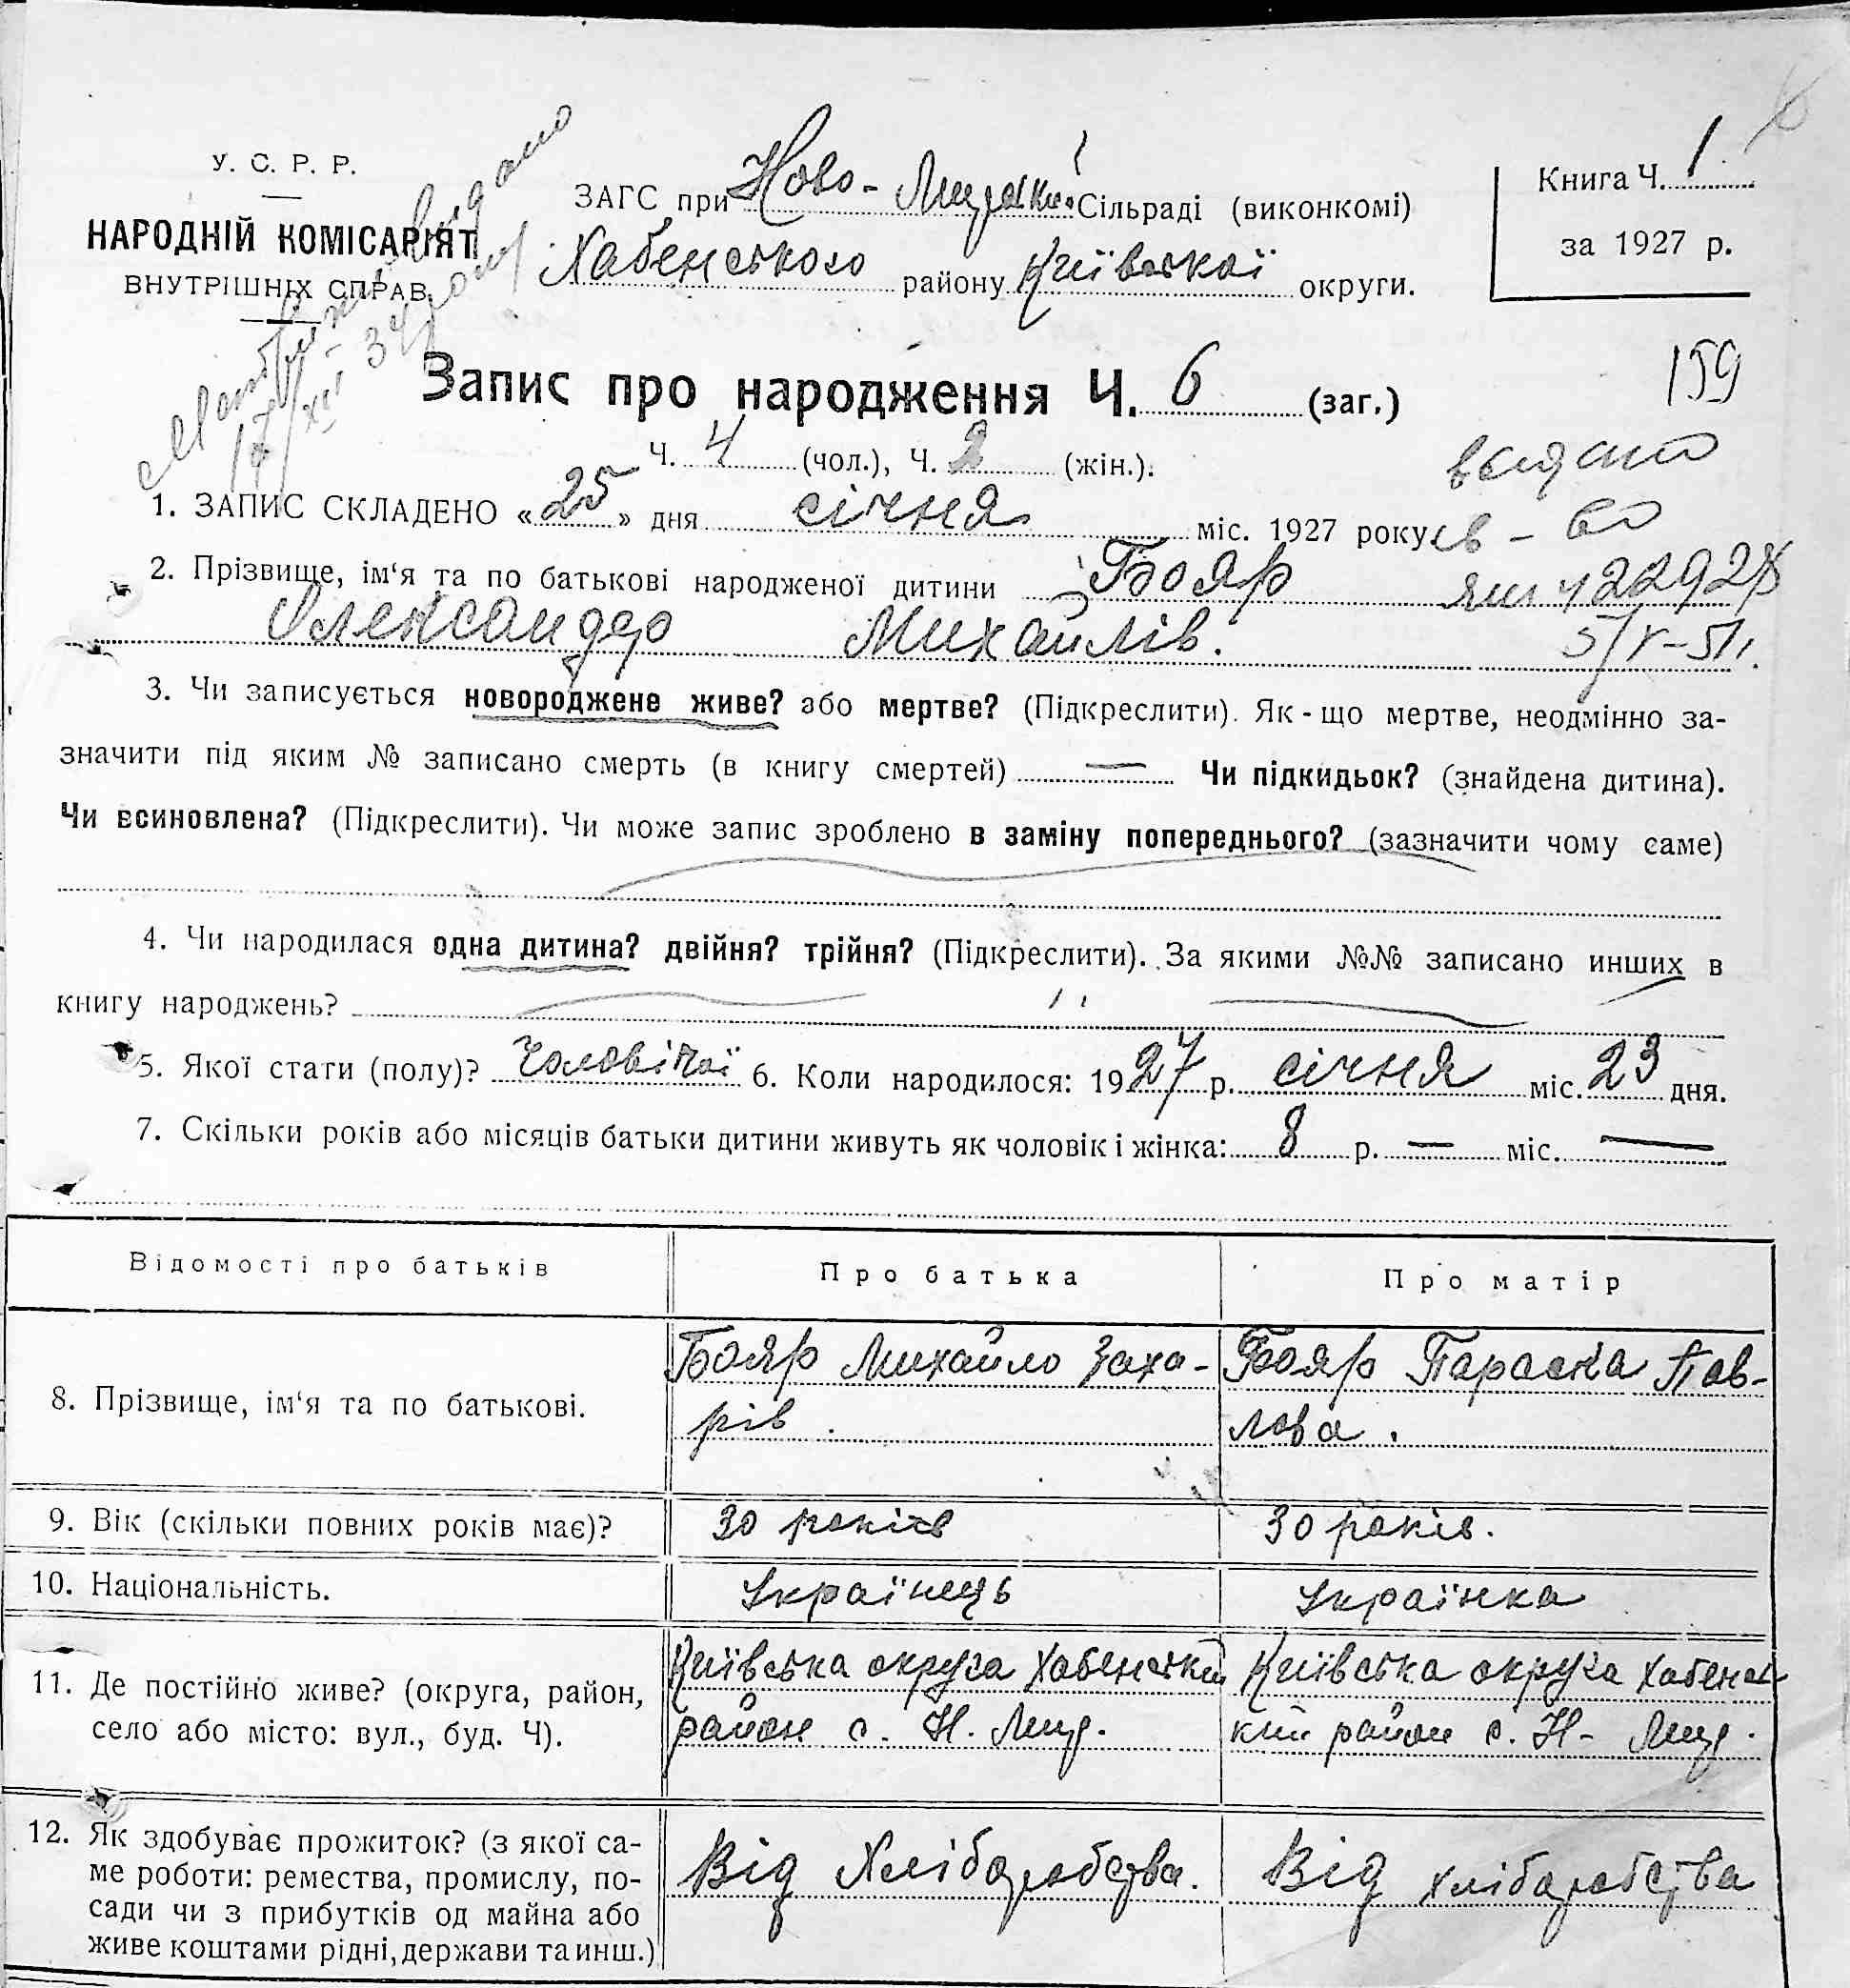 У. С. Р. Р.
НАРОДНІЙ КОМІСАРІЯТ
ВНУТРІШНІХ СПРАВ
ЗАГС при Ново- Сільраді (виконкомі)
Хабенського району Київської округи.
Книга Ч. 1
за 1927 р.
видано
Запис про народження Ч. 6 (заг.)
159
Ч. 4 (чол.), Ч. 2 (жін.).
видано
1. ЗАПИС СКЛАДЕНО «25» дня січня міс. 1927 року
св - во
2. Прізвище, ім‘я та по батькові народженої дитини Бояр
Олександр Михайлів.
5/V-51
3. Чи записується новороджене живе? або мертве? (Підкреслити). Як - що мертве, неодмінно за-
значити під яким № записано смерть (в книгу смертей) — Чи підкидьок? (знайдена дитина).
Чи всиновлена? (Підкреслити). Чи може запис зроблено в заміну попереднього? (зазначити чому саме)
4. Чи народилася одна дитина? двійня? трійня? (Підкреслити). За якими №№ записано инших в
книгу народжень?
5. Якої стати (полу)? Чоловічої 6. Коли народилося: 1927 р. січня міс. 23 дня.
7. Скільки років або місяців батьки дитини живуть як чоловік і жінка: 8 р. — міс. —
Відомості про батьків Про батька Про матір
8. Прізвище, ім‘я та по батькові.
Бояр Михайло Заха-
рів.
Бояр Параска Пав-
лова.
9. Вік (скільки повних років має)? 30 років 30 років.
10. Національність. Українець Українка
11. Де постійно живе? (округа, район,
село або місто: вул., буд. Ч).
Київська округа Хабенський
район с. Н. Мир.
Київська округа Хабенсь-
кий район с. Н- Мир.
12. Як здобуває прожиток? (з якої са-
ме роботи: ремества, промислу, по-
сади чи з прибутків од майна або
живе коштами рідні, держави та инш.)
Від Хліборобства.
Від хліборобства